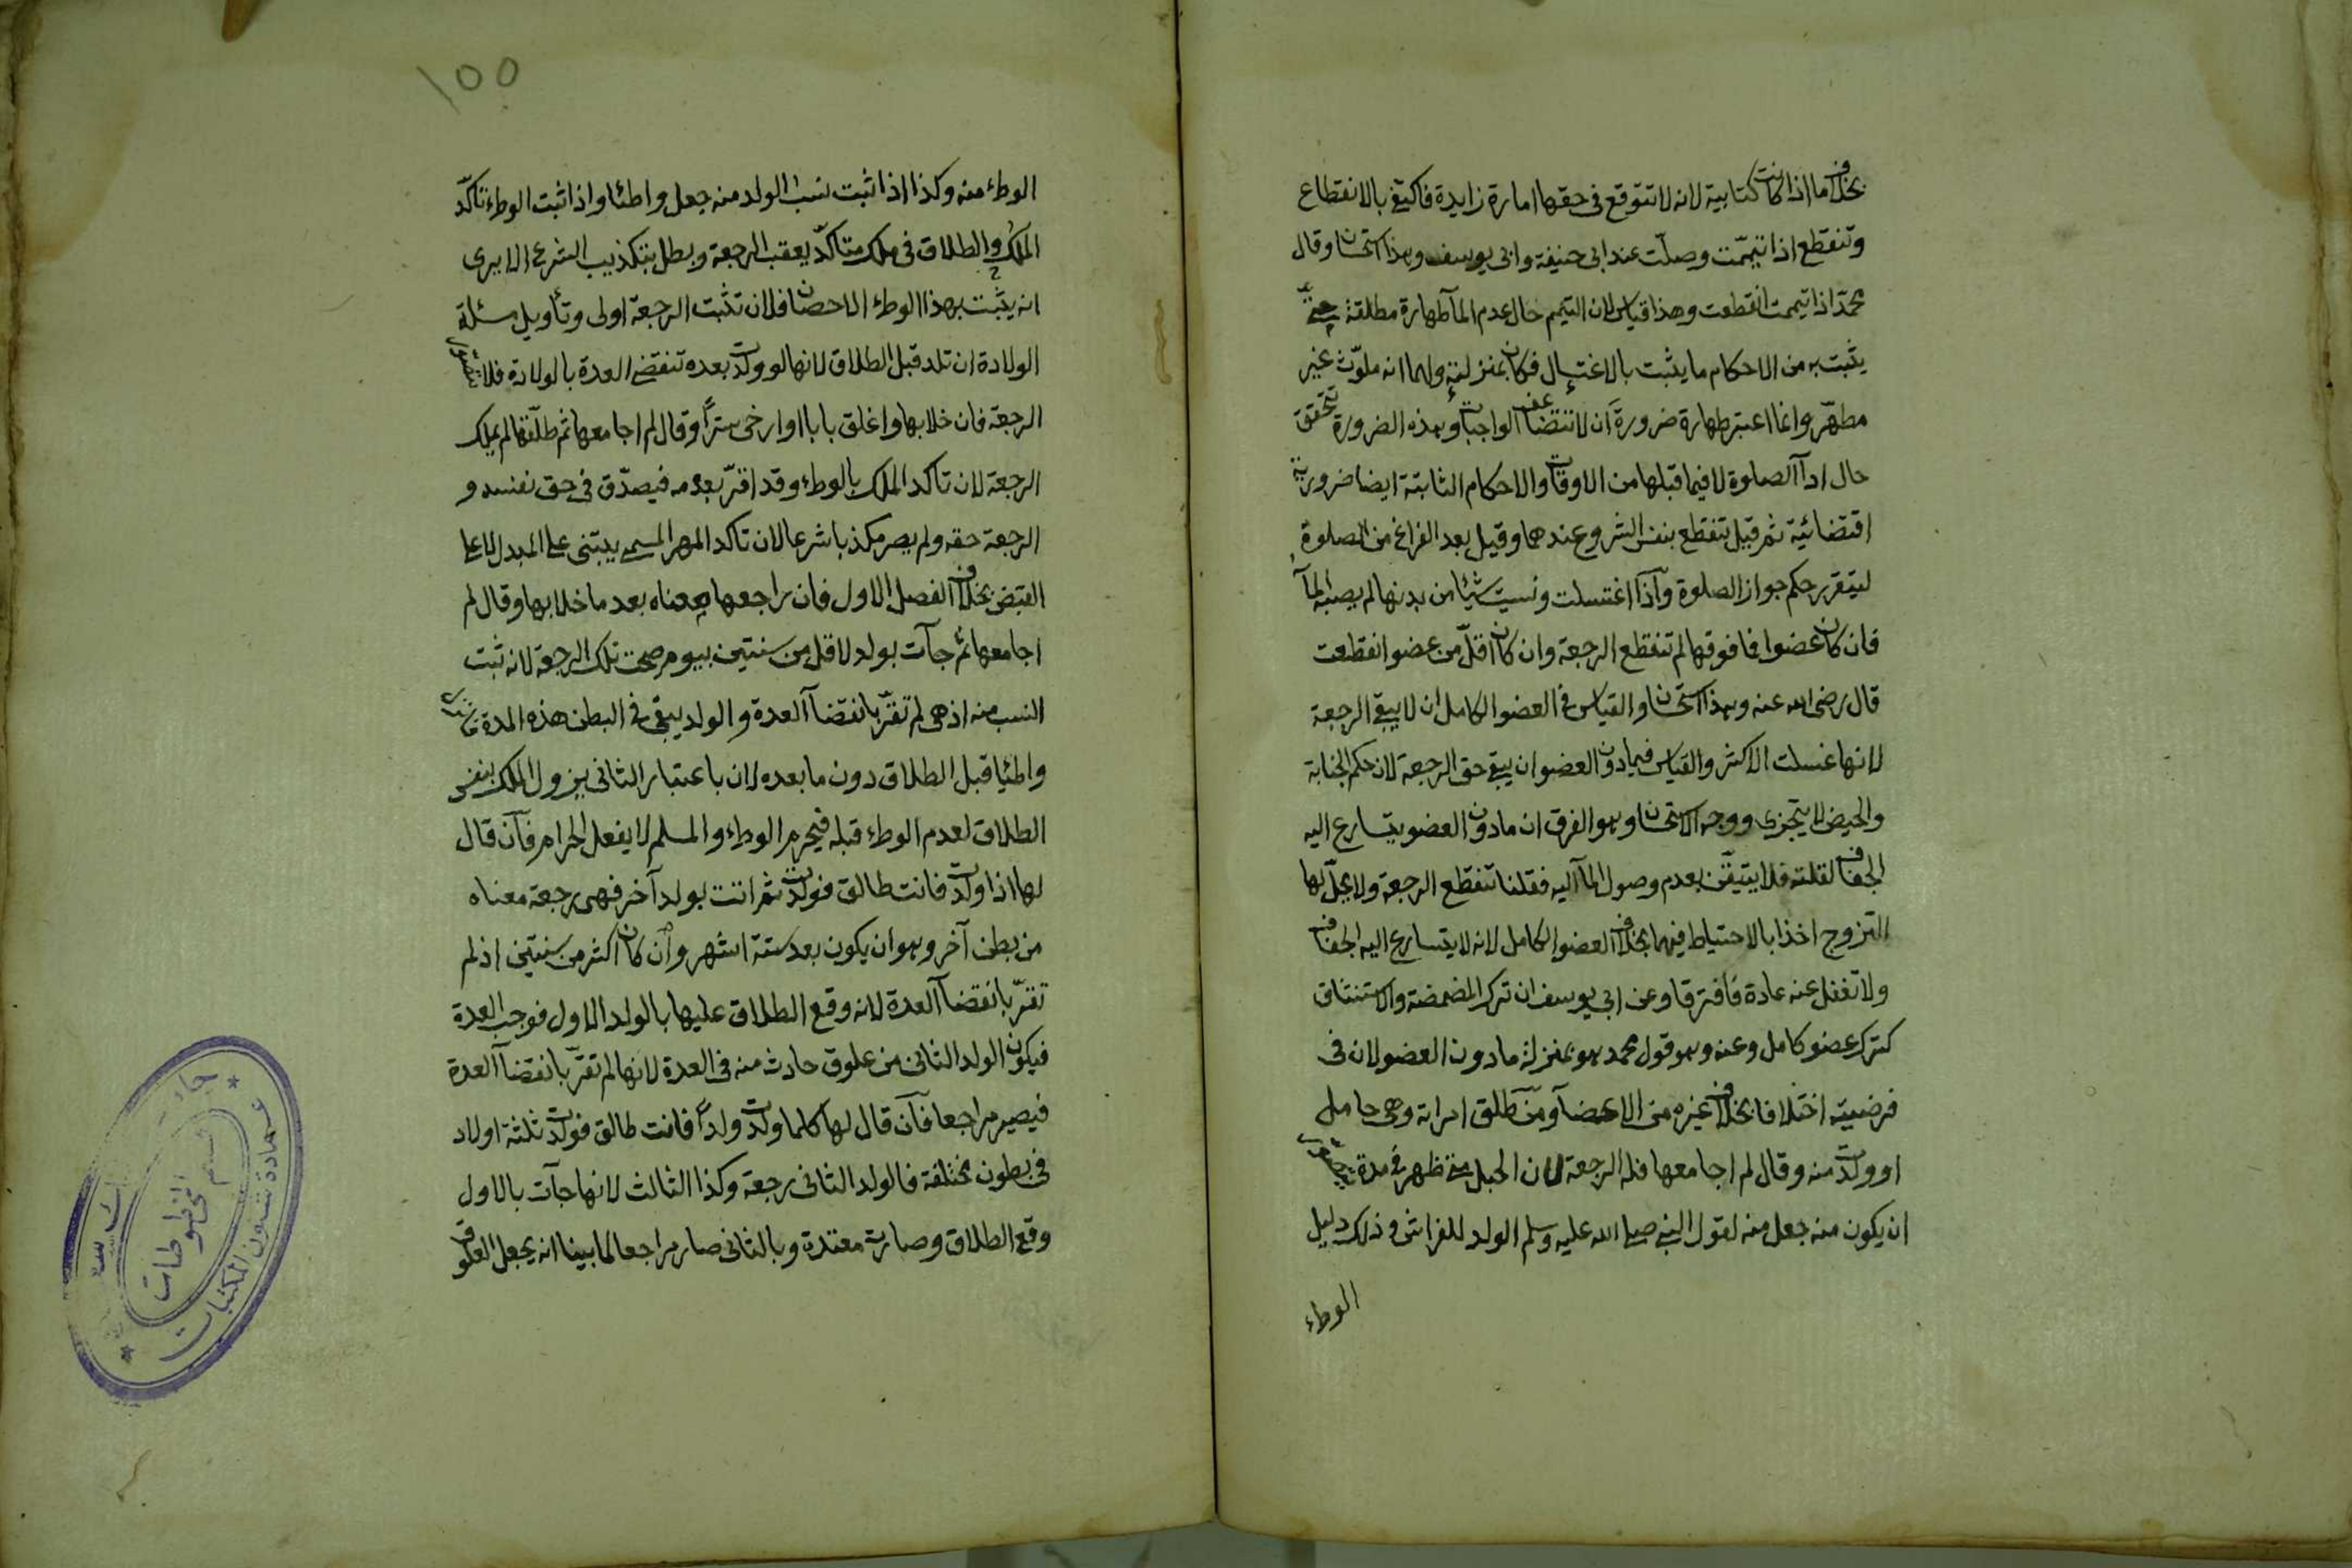 بخلاف ما اذا كانت كتابية لانه لا تتوقع فى حقها امارة زايدة فاكتفى بالانقطاع
وتنقطع اذا تيممّت وصلّت عند ابى حنيفة وابى يوسف وهذا استحسان وقال
محمد اذا تيممت انقطعت وهذا قياس لان التيمم حال عدم المآ طهارة مطلقة حتى
يثبت به من الاحكام ما يثبت بالاغتسال فكان بمنزلته ولهما انه ملوّث غير
مطهّر وانما اعتبر طهارة ضرورةَ ان لا تتضاعف الواجبات وهذه الضرورة تتحقق
حال ادآ الصلوة لا فيما قبلها من الاوقات والاحكام الثابتة ايضا ضرورية
اقتضائية ثم قيل تنقطع بنفس الشروع عندهما وقيل بعد الفراغ من الصلوة
ليتقرر حكم جواز الصلوة واذا اغتسلت ونسيت شيئا من بدنها لم يصبه المآ
فان كان عضوا فما فوقها لم تنقطع الرجعة وان كان اقلّ من عضو انقطعت
قال رضى الله عنه وهذا استحسان والقياس فى العضو الكامل ان لا يبقى الرجعة
لانها غسلت الاكثر والقياس فيما دون العضو ان يبقى حق الرجعة لان حكم الجنابة
والحيض لا يتجزى ووجه الاستحسان وهو الفرق ان ما دون العضو يتسارع اليه
الجفاف لقلته فلا يتيقّن بعدم وصول المآ اليه فقلنا تنقطع الرجعة ولا يحلّ لها
التزوج اخذا بالاحتياط فيهما بخلاف العضو الكامل لانه لا يتسارع اليه الجفاف
ولا تغفل عنه عادة فافترقا وعن ابى يوسف ان ترك المضمضة والاستنشاق
كترك عضو كامل وعنه وهو قول محمد هو بمنزلة ما دون العضو لان فى
فرضيته اختلافا بخلاف غيره من الاعضآ ومن طلق امراته وهى حامل
او ولدت منه وقال لم اجامعها فله الرجعة لان الحبل متى ظهر فى مدة يتصور
ان يكون منه جعل منه لقول النبى صلى الله عليه وسلم الولد للفراش وذلك دليل
الوطء
١٥٥
الوطء منه وكذا اذا ثبت نسب الولد منه جعل واطئا واذا ثبت الوطء تاكّد
الملك والطلاق فى ملك متاكّد يعقب الرجعة وبطل بتكذيب الشرع الا يرى
انه يثبت بهذا الوطء الاحصان فلان تثبت الرجعة اولى وتأويل مسئلة
الولادة ان تلد قبل الطلاق لانها لو ولدت بعده تنقضى العدة بالولادة فلا يتصور
الرجعة فان خلا بها واغلق بابا او ارخى ستراً وقال لم اجامعها ثم طلّقها لم يملك
الرجعة لان تاكد الملك بالوطء وقد اقرّ بعدمه فيصدّق فى حق نفسه و
الرجعة حقه ولم يصر مكذبا شرعا لان تاكد المهر المسمى يبتنى على المبدل لا على
القبض بخلاف الفصل الاول فان راجعها معناه بعد ما خلا بها وقال لم
اجامعها ثم جآت بولد لاقل من سنتين بيوم صحت تلك الرجعة لانه ثبت
النسب منه اذ هى لم تقرّ بانقضآ العدة والولد يبقى فى البطن هذه المدة
واطئيا قبل الطلاق دون ما بعده لان باعتبار الثانى يزول الملك بنفس
الطلاق لعدم الوطء قبله فيحرم الوطء والمسلم لا يفعل الحرام فآن قال
لها اذا ولدت فانت طالق فولدت ثم اتت بولد آخر فهى رجعة معناه
من بطن آخر وهو ان يكون بعد ستة اشهر وان كان اكثر من سنتين اذ لم
تقرّ بانقضآ العدة لانه وقع الطلاق عليها بالولد الاول فوجب العدة
فيكون الولد الثانى من علوق حادث منه فى العدة لانها لم تقرّ بانقضآ العدة
فيصير مراجعا فآن قال لها كلما ولدت ولداً فانت طالق فولدت ثلثة اولاد
فى بطون مختلفة فالولد الثانى رجعة وكذا الثالث لانها جآت بالاول
وقع الطلاق وصارت معتدة وبالثانى صار مراجعا لما بينا انه يجعل العلوق
عمادة شئون المكتبات
قسم المخطوطات